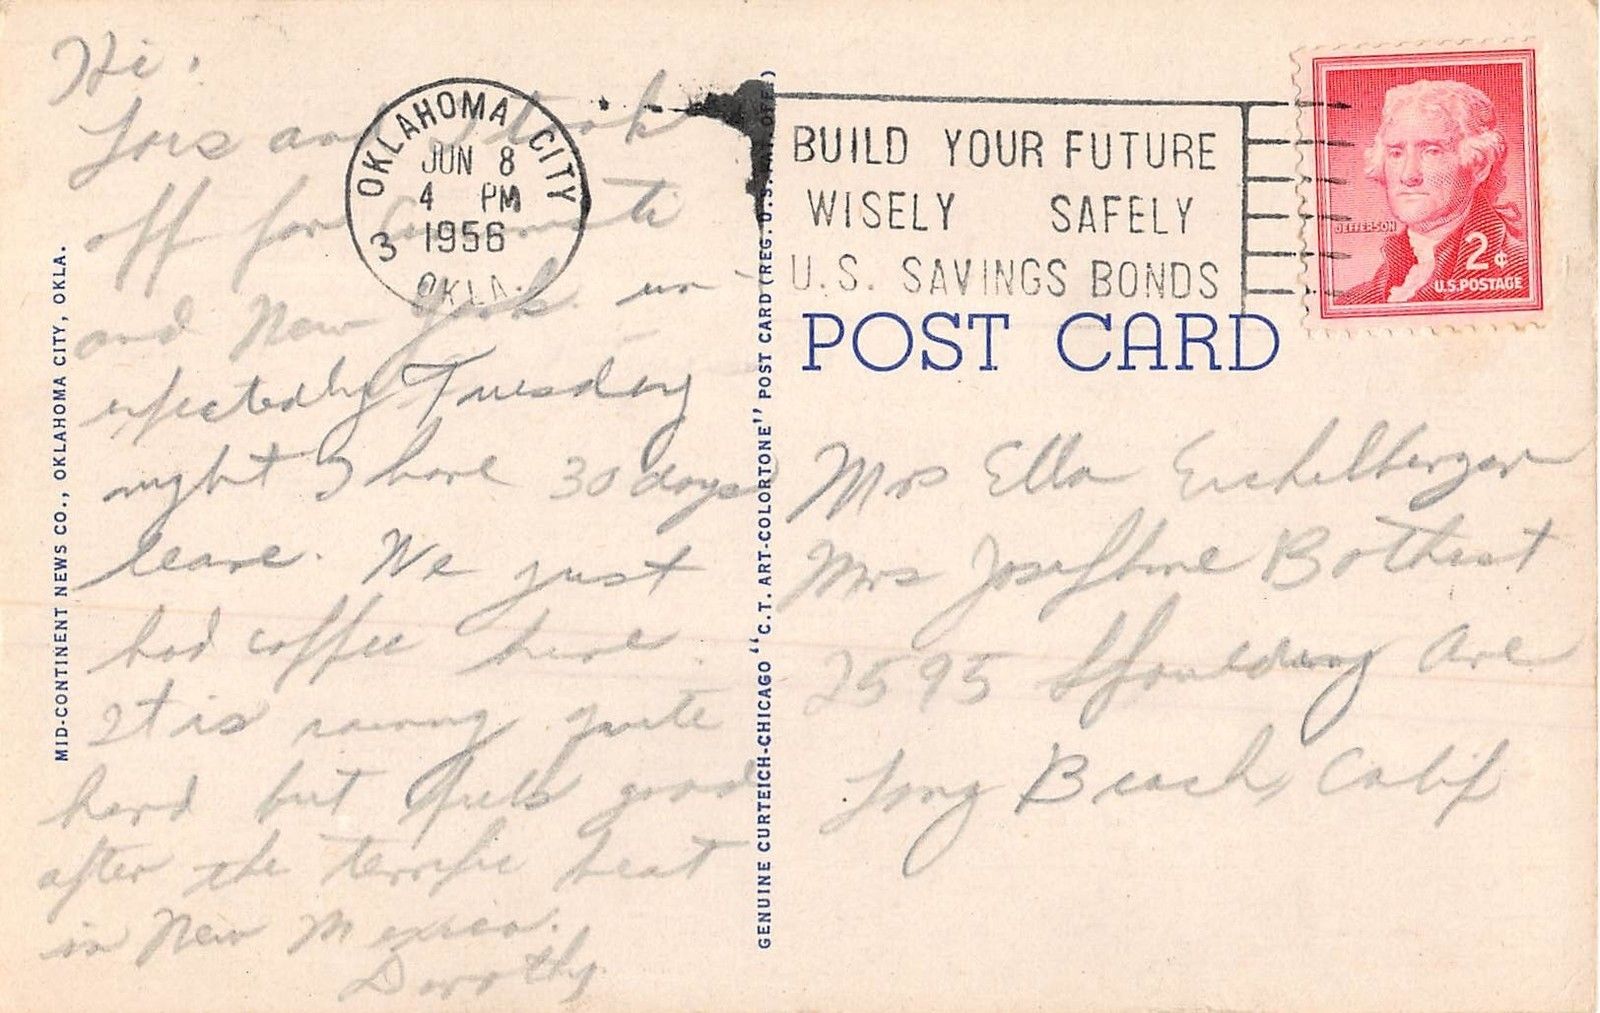 Hi.
Lois and I took
off for
and New York un-
expectedly Tuesday
night I have 30 days
leave. We just
had coffee here.
It is raining quite
hard but feels good
after the terrific heat
in New Mexico.
Dorothy
OKLAHOMA CITY
JUN 8
4 PM
1956
3
OKLA.
BUILD YOUR FUTURE
WISELY SAFELY
U.S. SAVINGS BONDS
JEFFERSON
2¢
U.S. POSTAGE
POST CARD
Mrs Ella Eichelberger
Mrs Josephine
2595 Spaulding Ave
Long Beach, Calif
MID-CONTINENT NEWS CO., OKLAHOMA CITY, OKLA.
GENUINE CURTEICH-CHICAGO "C.T. ART-COLORTONE" POST CARD (REG. U.S. PAT. OFF.)